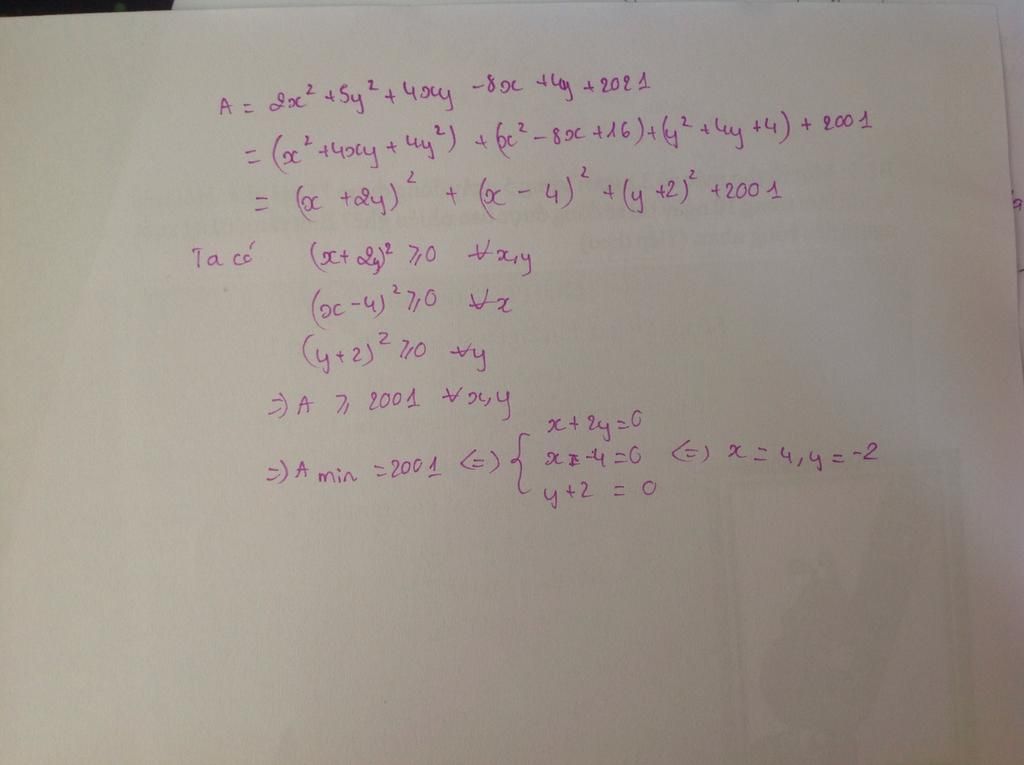 A = 2x² + 5y² + 4xy - 8x + 4y + 2021
= (x² + 4xy + 4y²) + (x² - 8x + 16) + (y² + 4y + 4) + 2001
= (x + 2y)² + (x - 4)² + (y + 2)² + 2001
Ta có (x + 2y)² ⩾ 0 ∀x,y
(x - 4)² ⩾ 0 ∀x
(y + 2)² ⩾ 0 ∀y
=> A ⩾ 2001 ∀x,y
x + 2y = 0
=> A min = 2001 <=> { x - 4 = 0 <=> x = 4, y = -2
y + 2 = 0